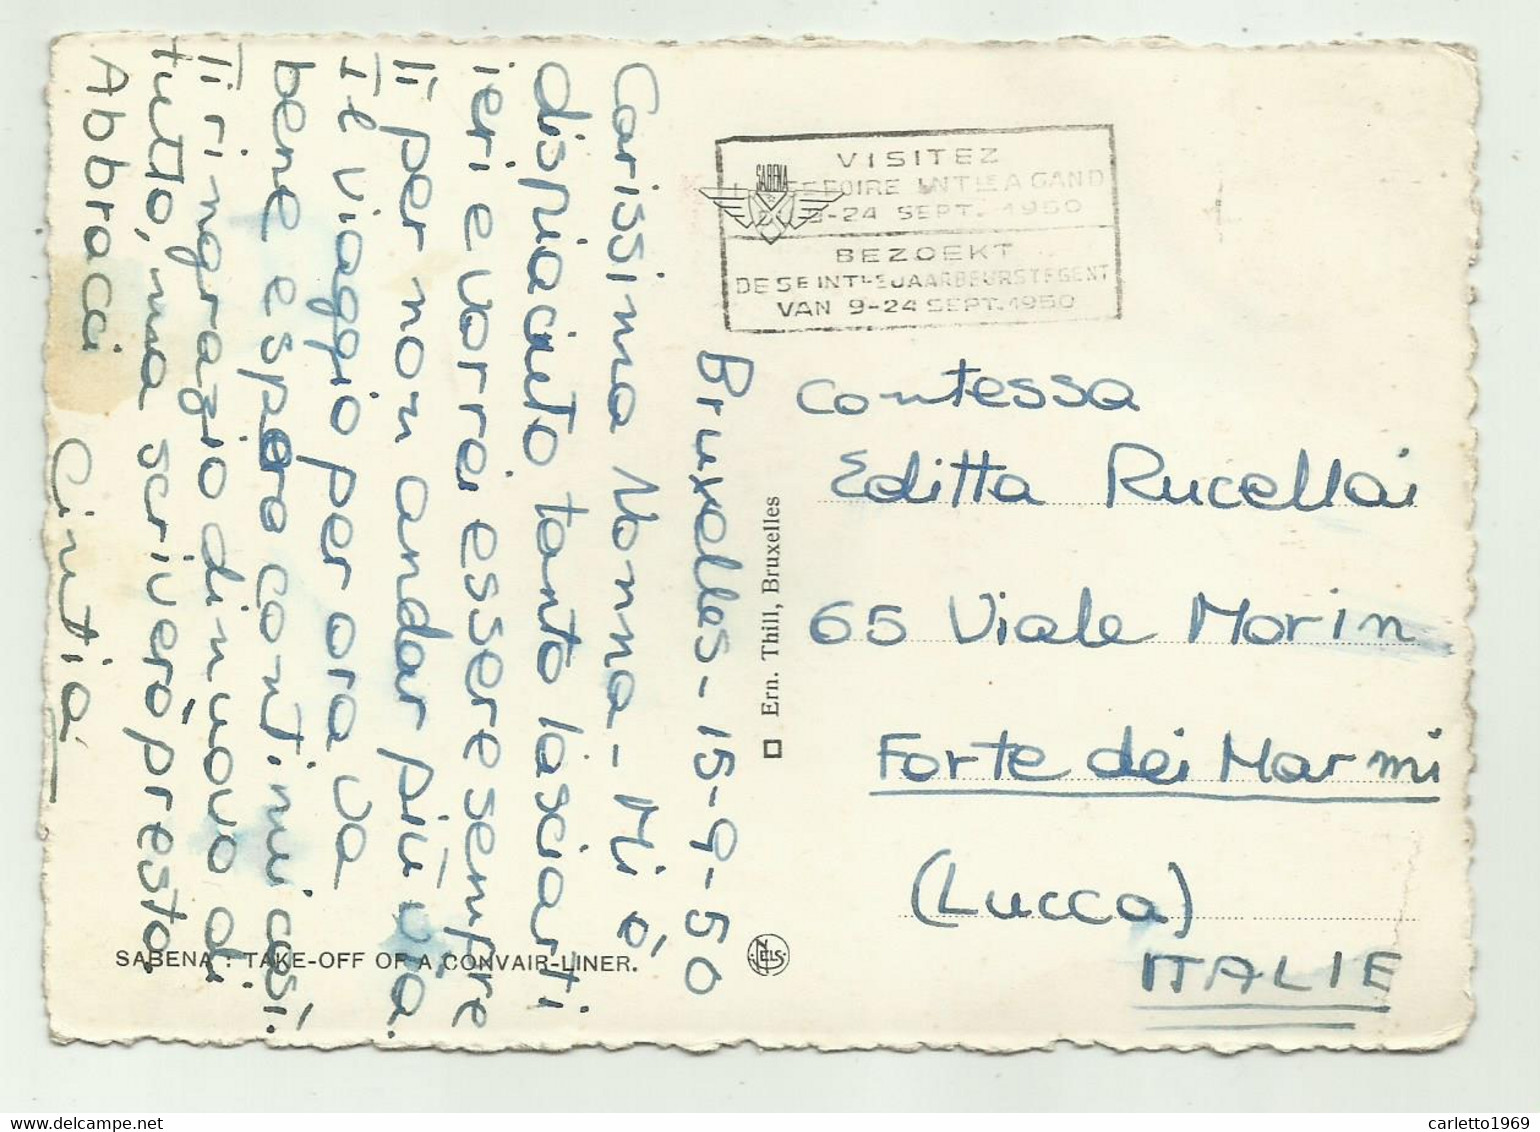 Bruxelles - 15-9-50
Carissima Nonna - Mi è
dispiaciuto tanto lasciarti
ieri e vorrei essere sempre
lì per non andar più via.
Il viaggio per ora va
bene e spero continui così.
Ti ringrazio di nuovo di
tutto, ma scriverò presto.
Abbracci
Cintia
VISITEZ
FOIRE INTLE A GAND
9-24 SEPT. 1950
BEZOEKT
DE 5E INTLE JAARBEURS TE GENT
VAN 9-24 SEPT. 1950
SABENA
Ern. Thill, Bruxelles
Contessa
Editta Rucellai
65 Viale Morin
Forte dei Marmi
(Lucca)
ITALIE
SABENA : TAKE-OFF OF A CONVAIR-LINER.
NELS
carletto1969